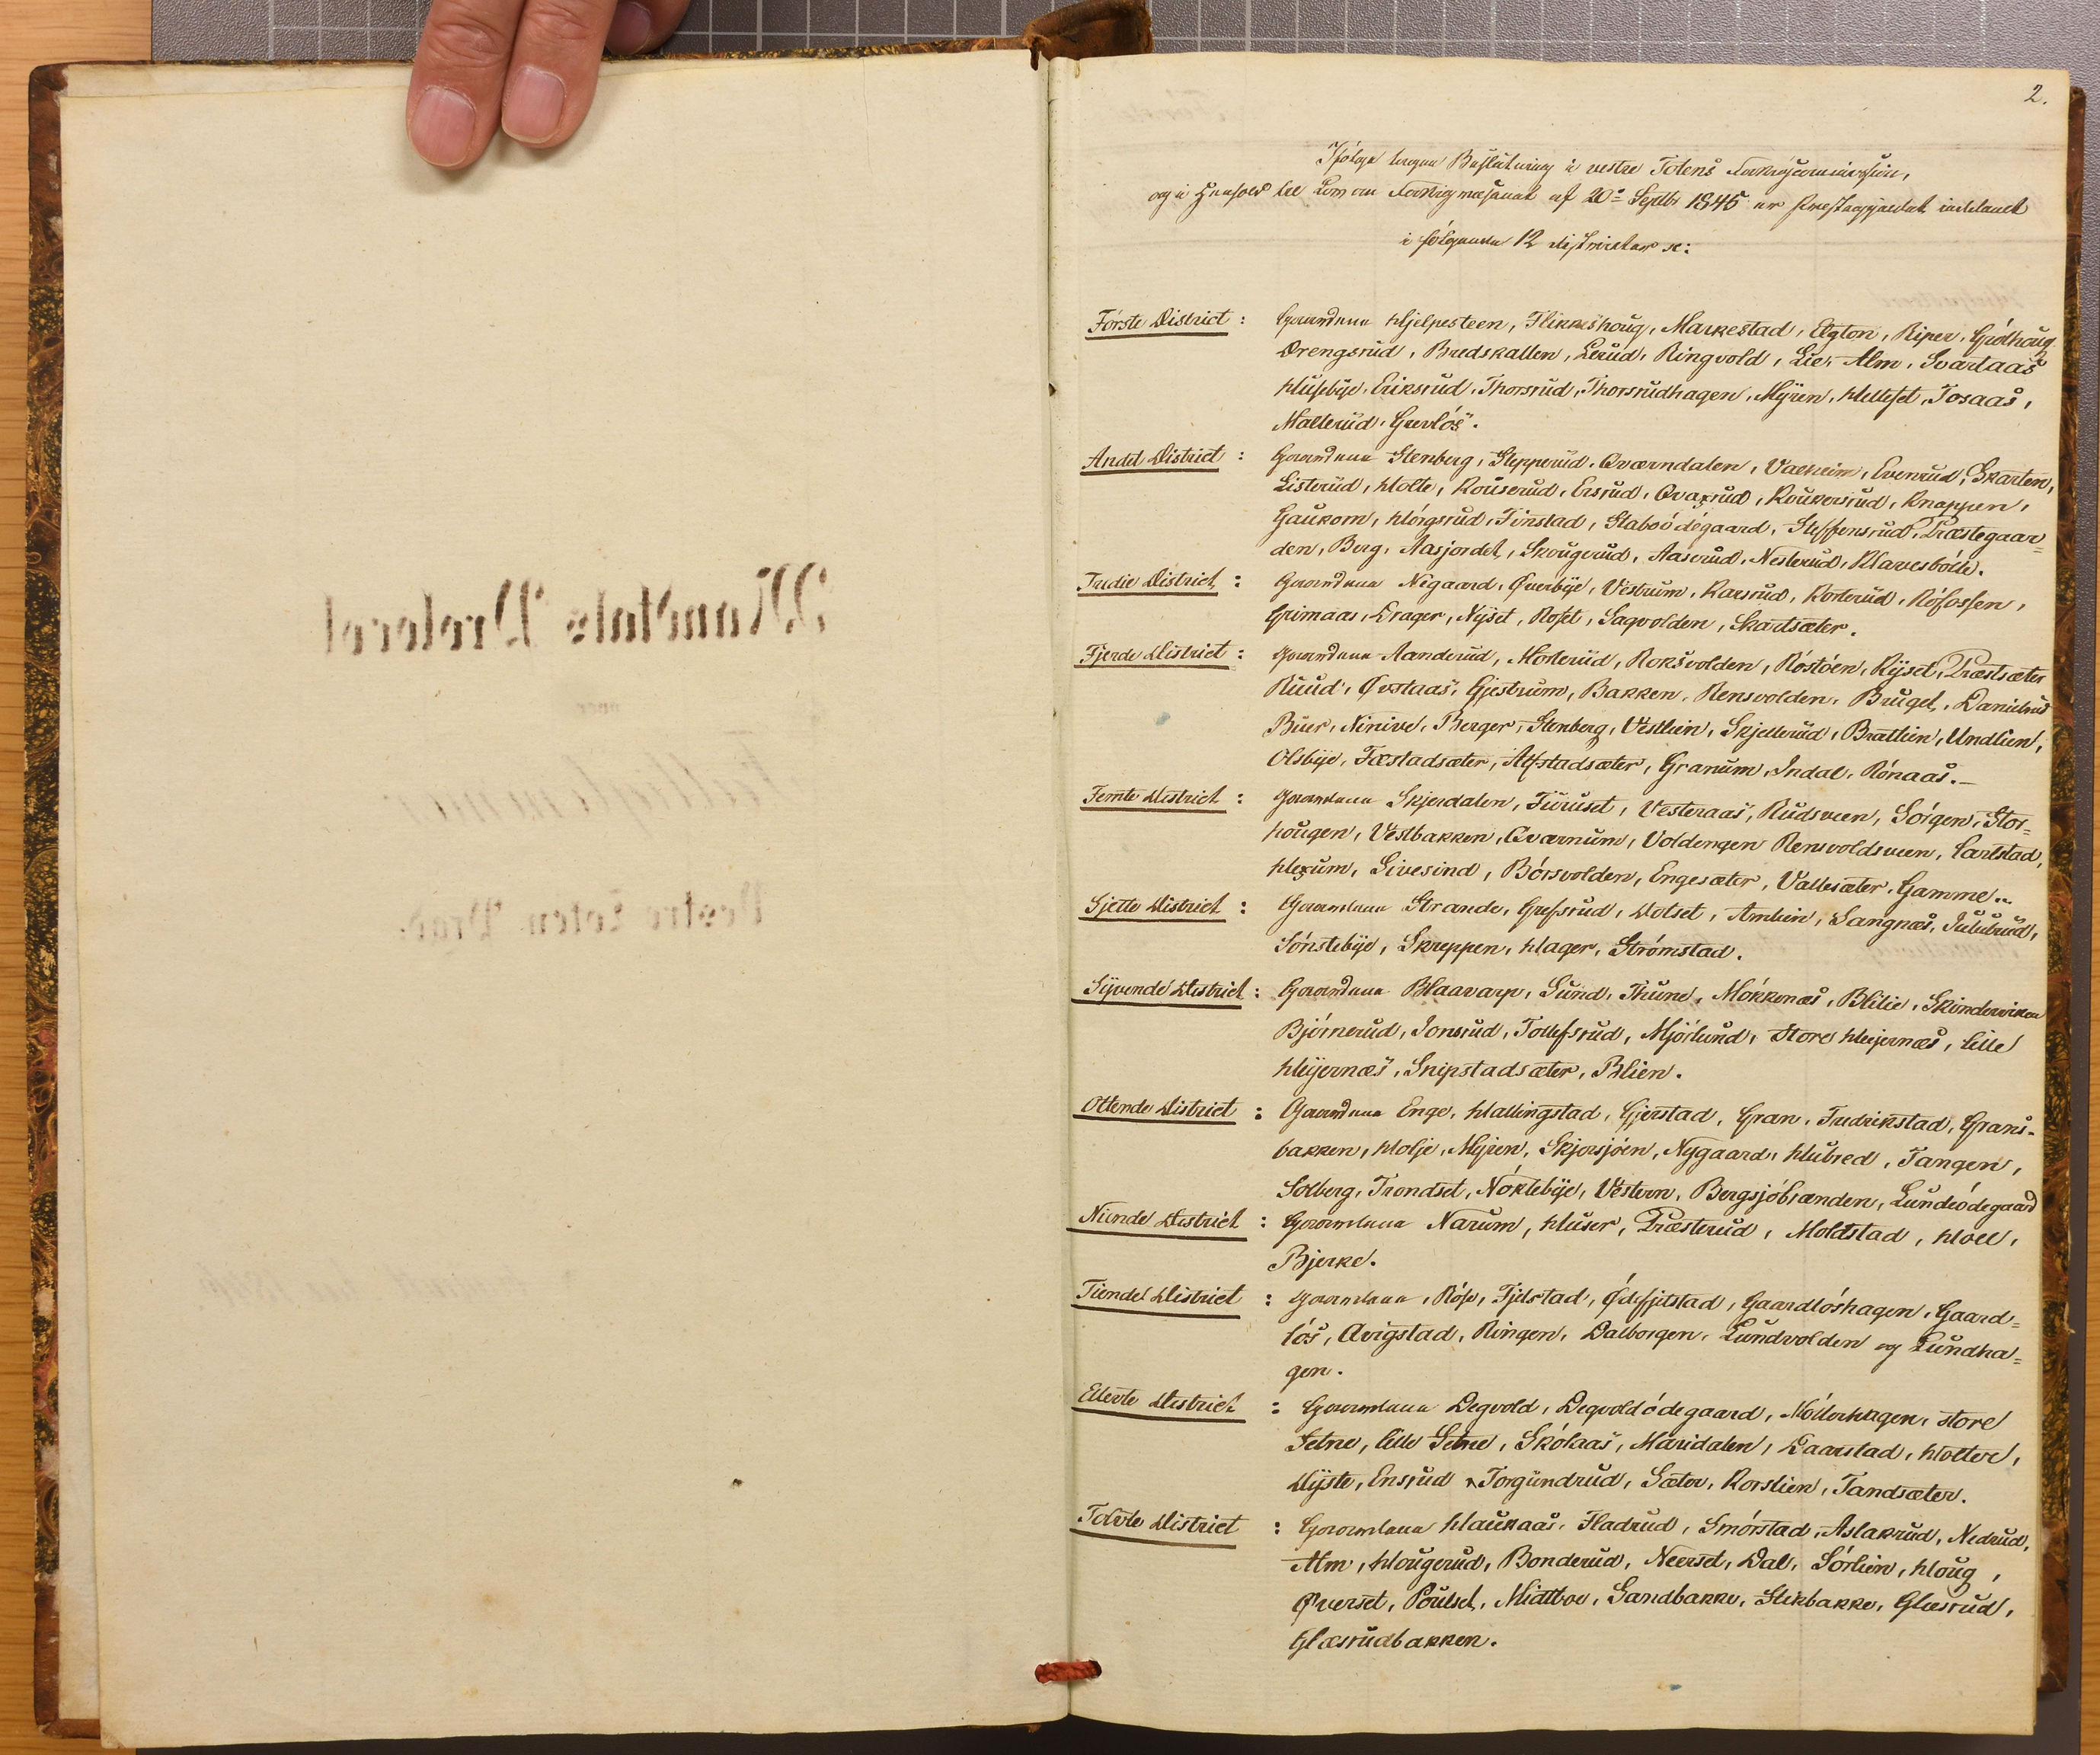 2.
Ifølge tagen Beslutning i vestre Totens Fattigcommission,
og i Henhold til Lov om Fattigvæsenet af 20de Septbr 1845 er Præstegjældet inddeelt
i følgende 12 districter sc:
Første District : Gaardene Hjelpesteen, Flikkeshoug, Markestad, Elgton, Riper, Gjølhoug
Drengsrud, Bredskallen, Lerud, Ringvold, Lie, Alm, Svartaas
Husebye, Eriksrud, Thorsrud, Thorsrudhagen, Myren, Helleset, Josaas,
Mallerud, Grevløs.
Andet District : Gaardene Stenberg, Glepperud, Qværndalen, Valheim, Evenrud, Skarten,
Listerud, Holte, Rouserud, Ersrud, Roukersrud, Knappen,
Gaukom, Hørgsrud, Finstad, Slaboødegaard, Steffensrud, Præstegaar=
den, Berg, Aasjordet, Skougerud, Aaserud, Nesterud, Klavesbøle.
Tredie District : Gaardene Nigaard, Øverbye, Vestrum, Karsrud, Kosterud, Røfossen,
Grimaas, Drager, Nyset, Roset, Sagvolden, Skartsæter.
Fjerde District : Gaardene Aanderud, Mosterud, Roksvolden, Røstøen, Ryset, Præstsæter
Ruud, Øvstaas, Gjestrum, Bakken, Rensvolden, Bruget, Danielsrud
Buer, Ninive, Berger, Stenberg, Vestlien, Skjellerud, Brattlien, Undlien,
Olsbye, Fæstadsæter, Alfstadsæter, Granum, Indal, Rønaas.—
Femte District : Gaardene Skjerdalen, Furuset, Vesteraas, Rudsveen, Sørgen, Stor=
hougen, Vestbakken, Qværnum, Voldengen Rensvoldsveen, Carlstad,
Hexum, Sivesind, Børsvolden, Engesæter, Vallesæter, Gamme..
Sjette District : Gaardene Strande, Grefsrud, Dotset, Amlien, Langnæs, Julubrud,
Sønstebye, Skreppen, Hager, Strømstad.
Syvende District : Gaardene Blaavarp, Sund, Thune, Møkkenæs, Blilie, Skindervika
Bjørnerud, Jonsrud, Tollefsrud, Mjørlund, Store Heijernæs, lille
Heijernæs, Snipstadsæter, Blien.
Ottende District : Gaardene Enge, Hallingstad, Gjerstad, Gran, Fredrikstad, Grans-
bakken, Holje, Myren, Skjersjøen, Nygaard, Hubred, Tangen,
Solberg, Trondset, Nøklebye, Vestern, Bergsjøbrænden, Lundeødegaard
Niende District : Gaardene Narum, Huser, Præsterud, Moldstad, Hoel,
Bjerke.
Tiende District : Gaardene, Røse, Fjelstad, Ødefjelstad, Gaardløshagen, Gaard=
løs, Avigstad, Ringen, Dalborgen, Lundvolden og Lundha=
gen.
Ellevte District : Gaardene Degvold, Degvoldødegaard, Møllerhagen, store
Setne, lille Setne, Skølaas, Maridalen, Laarstad, Holter,
Dyste, Ensrud, Torgundrud, Sæter, Korslien, Tandsæter.
Tolvte District : Gaardene Haukaas, Fladrud, Smørstad, Aslakrud, Nedrud,
Alm, Hougerud, Bonderud, Neerset, Dal, Sørlien, Houg,
Øverset, Poulsel, Midtboe, Sandbakke, Stikbakke, Glæsrud,
Glæsrudbakken.